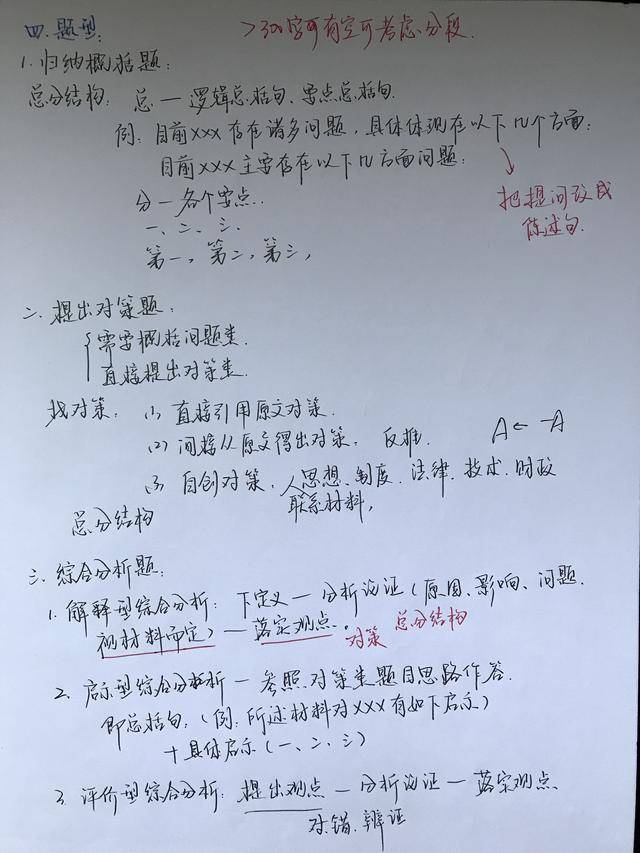 四.题型:
>300字可有空可考虑分段.
1.归纳概括题:
总分结构: 总—逻辑总括句、要点总括句.
例: 目前xxx存在诸多问题,具体体现在以下几个方面:
目前xxx主要存在以下几方面问题:
把提问改成
陈述句.
分—各个要点.
一、二、三.
第一,第二,第三,
二.提出对策题:
需要概括问题类.
直接提出对策类.
找对策: (1) 直接引用原文对策.
(2) 间接从原文得出对策, 反推. A←-A
(3) 自创对策. 人思想、制度、法律、技术、财政
联系材料,
总分结构
三.综合分析题:
1.解释型综合分析: 下定义—分析论证(原因、影响、问题.
视材料而定)—落实观点. 对策 总分结构
2.启示型综合分析—参照对策类题目思路作答.
即总括句:(例:所述材料对XXX有如下启示)
+具体启示(一、二、三)
3.评价型综合分析: 提出观点—分析论证—落实观点
对错.辨证